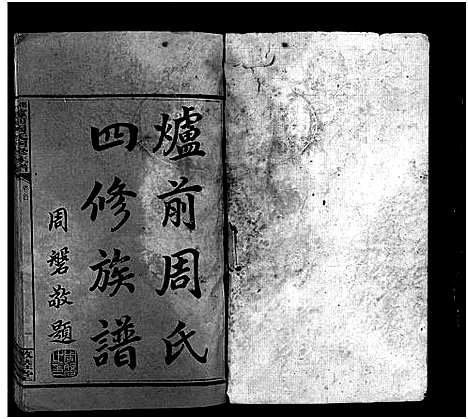 爐前周氏
四修族譜
周磐敬題